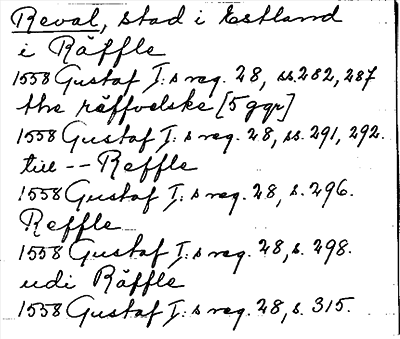 Reval, stad i Estland
i Räffle
1558 Gustaf I:s reg. 28, ss. 282, 287
the räffvelske [5 ggr]
1558 Gustaf I:s reg. 28, ss. 291, 292.
till -- Reffle
1558 Gustaf I:s reg. 28, s. 296.
Reffle
1558 Gustaf I:s reg. 28, s. 298.
udi Räffle
1558 Gustaf I:s reg. 28, s. 315.